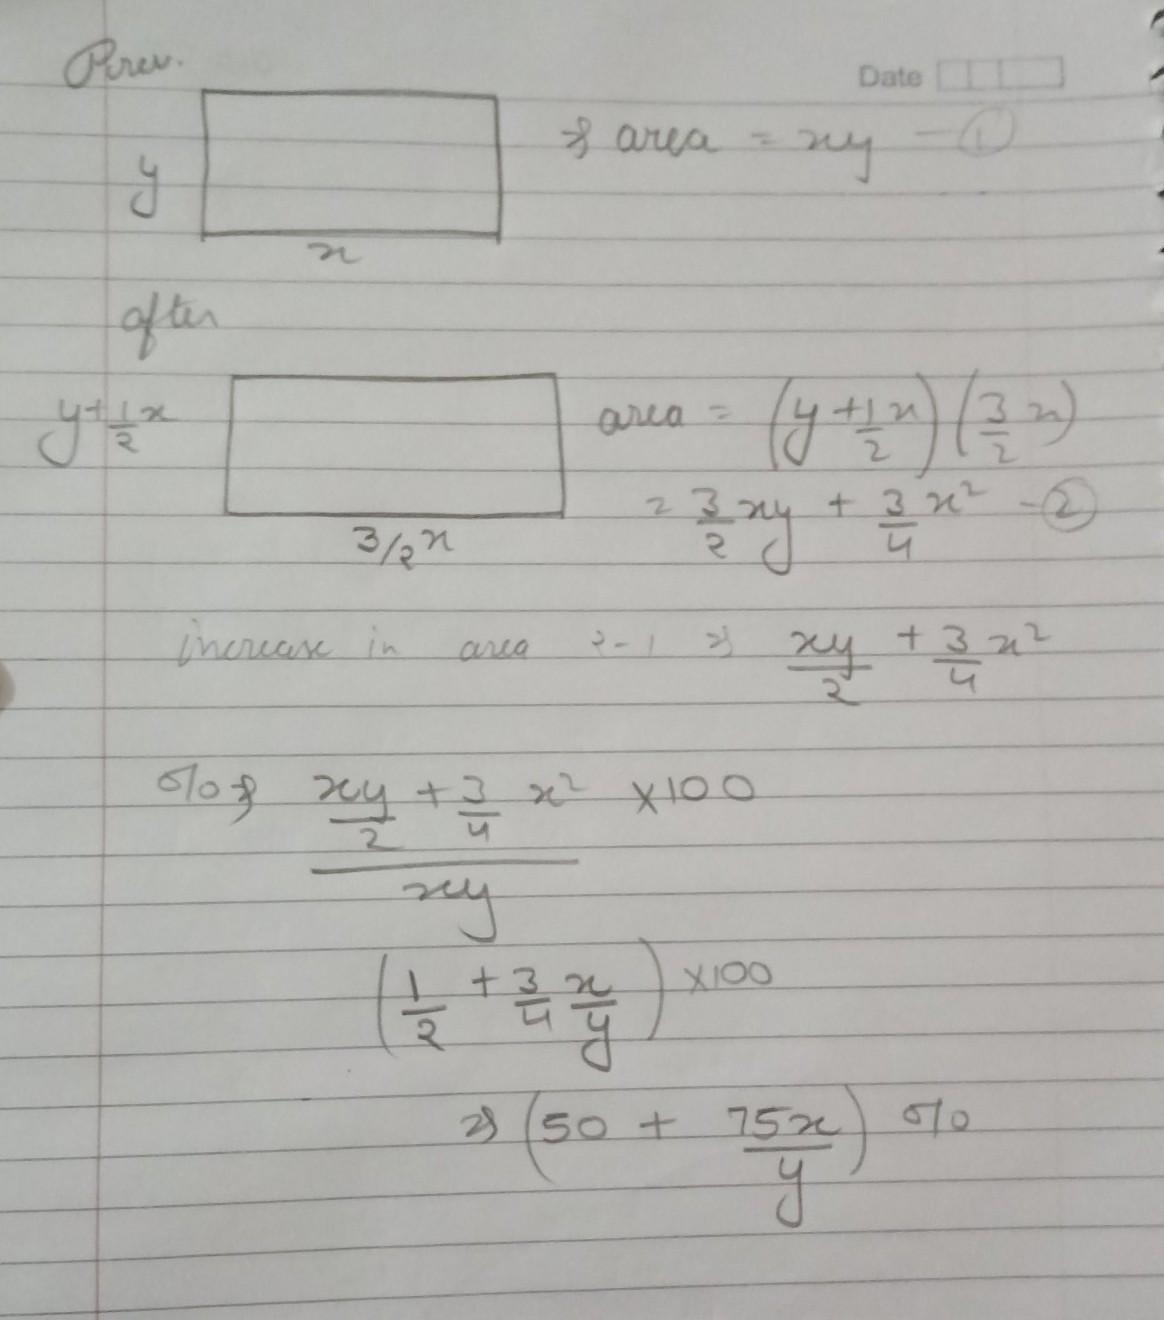 Prev.
Date
y
⇒ area = xy - ①
x
after
y+1/2 x
area = (y + 1/2 x) (3/2 x)
= 3/2 xy + 3/4 x² - ②
3/2 x
increase in area 2-1 ⇒ xy/2 + 3/4 x²
% ⇒ (xy/2 + 3/4 x²)/xy × 100
(1/2 + 3/4 x/y) × 100
⇒ (50 + 75x/y) %